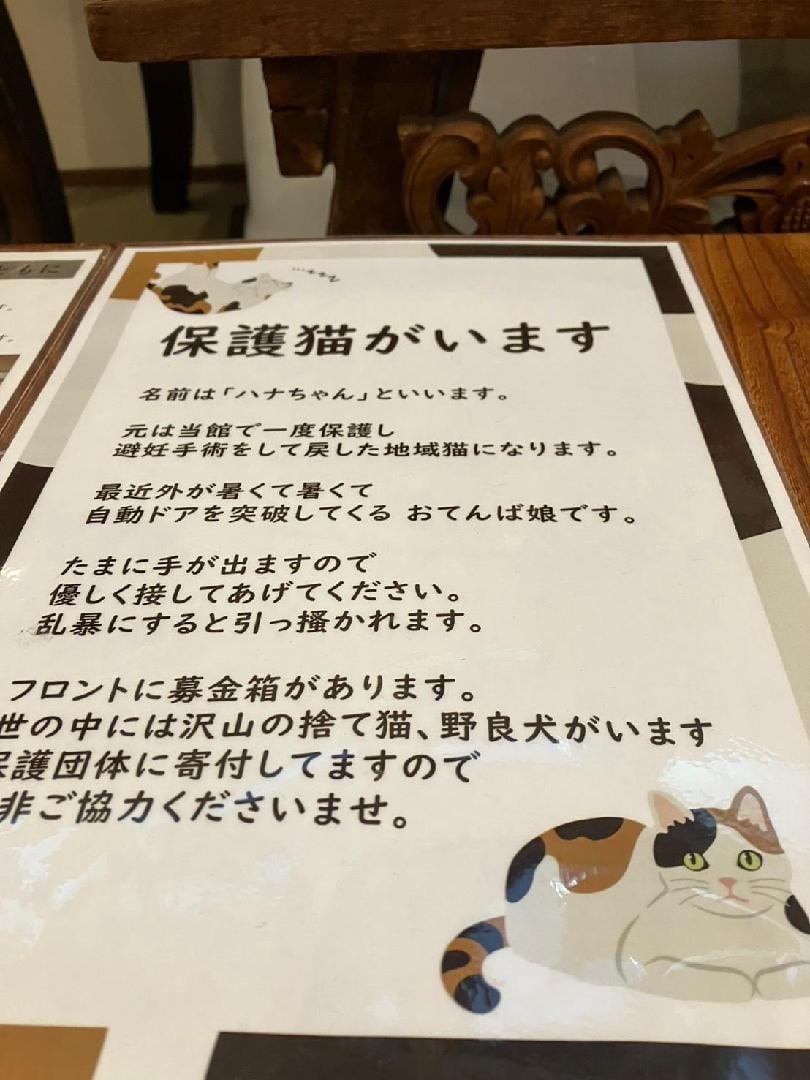 ともに
す。
す。
保護猫がいます
名前は「ハナちゃん」といいます。
元は当館で一度保護し
避妊手術をして戻した地域猫になります。
最近外が暑くて暑くて
自動ドアを突破してくる おてんば娘です。
たまに手が出ますので
優しく接してあげてください。
乱暴にすると引っ掻かれます。
フロントに募金箱があります。
世の中には沢山の捨て猫、野良犬がいます
保護団体に寄付してますので
非ご協力くださいませ。